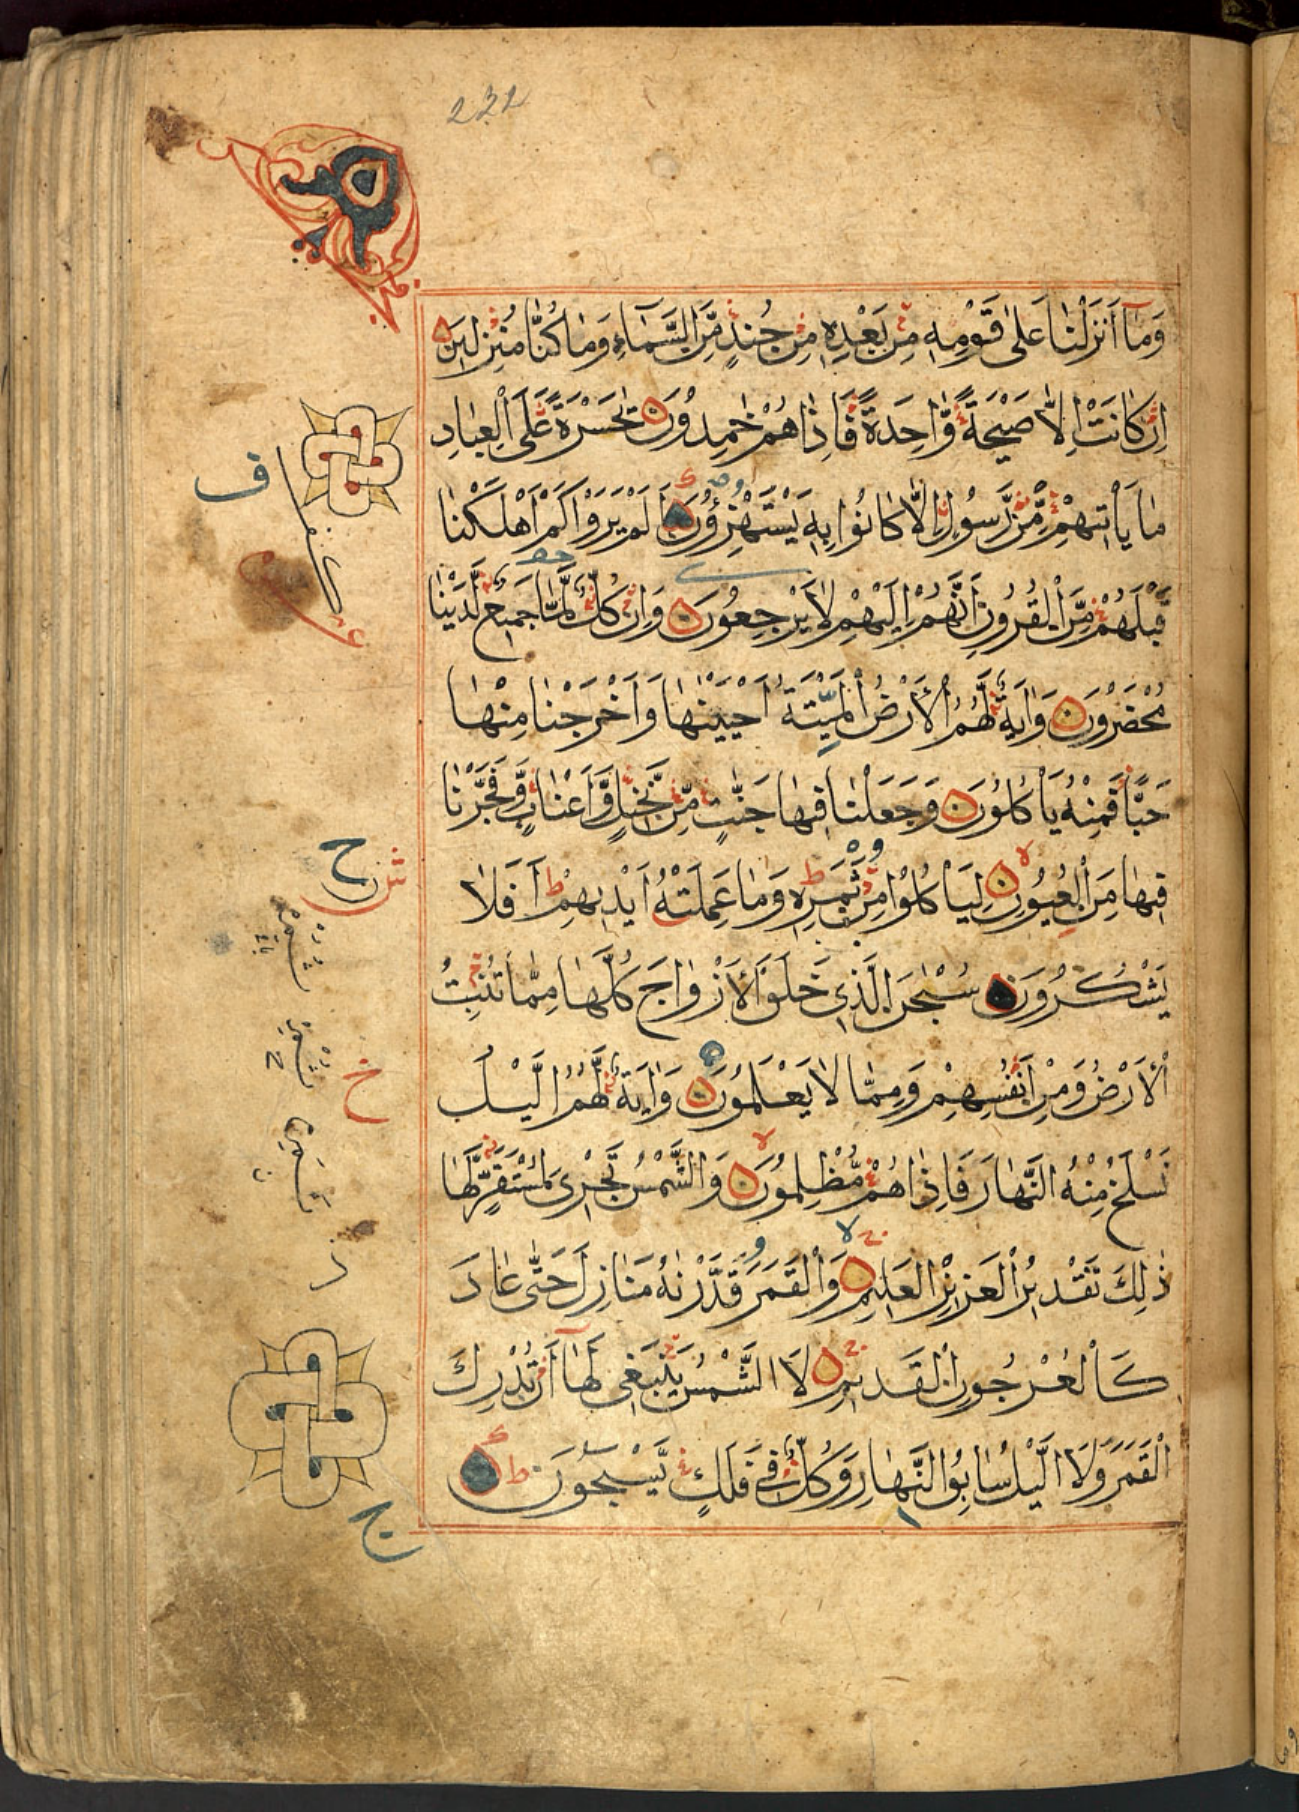 232
وَمَآ أَنزَلْنَا عَلىٰ قَوْمِهٖ مِنۢ بَعْدِهٖ مِنْ جُندٍ مِّنَ السَّمَآءِ وَمَا كُنَّا مُنْزِلِينَ
اِنْ كَانَتْ اِلاَّ صَيْحَةً وَّاحِدَةً فَاِذَا هُمْ خٰمِدُونَ يٰحَسْرَةً عَلَى الْعِبَادِ
مَا يَأْتِيهِمْ مِّنْ رَّسُولٍ اِلاَّ كَانُوا بِهٖ يَسْتَهْزِؤُنَ اَلَمْ يَرَوْا كَمْ اَهْلَكْنَا
قَبْلَهُمْ مِّنَ الْقُرُونِ اَنَّهُمْ اِلَيْهِمْ لَا يَرْجِعُونَ وَاِنْ كُلٌّ لَّمَّا جَمِيعٌ لَّدَيْنَا
مُحْضَرُونَ وَاٰيَةٌ لَّهُمُ الْأَرْضُ الْمَيْتَةُ اَحْيَيْنٰهَا وَاَخْرَجْنَا مِنْهَا
حَبًّا فَمِنْهُ يَأْكُلُونَ وَجَعَلْنَا فِيهَا جَنّٰتٍ مِّنْ نَّخِيلٍ وَّاَعْنَابٍ وَّفَجَّرْنَا
فِيهَا مِنَ الْعُيُونِ لِيَأْكُلُوا مِنْ ثَمَرِهٖ وَمَا عَمِلَتْهُ اَيْدِيهِمْ ط اَفَلَا
يَشْكُرُونَ سُبْحٰنَ الَّذِي خَلَقَ الْأَزْوَاجَ كُلَّهَا مِمَّا تُنْبِتُ
الْأَرْضُ وَمِنْ اَنْفُسِهِمْ وَمِمَّا لَا يَعْلَمُونَ وَاٰيَةٌ لَّهُمُ الَّيْلُ
نَسْلَخُ مِنْهُ النَّهَارَ فَاِذَا هُمْ مُّظْلِمُونَ وَالشَّمْسُ تَجْرِى لِمُسْتَقَرٍّ لَّهَا
ذٰلِكَ تَقْدِيرُ الْعَزِيزِ الْعَلِيمِ وَالْقَمَرَ قَدَّرْنٰهُ مَنَازِلَ حَتّٰى عَادَ
كَالْعُرْجُونِ الْقَدِيمِ لَا الشَّمْسُ يَنْبَغِى لَهَآ اَنْ تُدْرِكَ
الْقَمَرَ وَلَا الَّيْلُ سَابِقُ النَّهَارِ وَكُلٌّ فِي فَلَكٍ يَّسْبَحُونَ ط